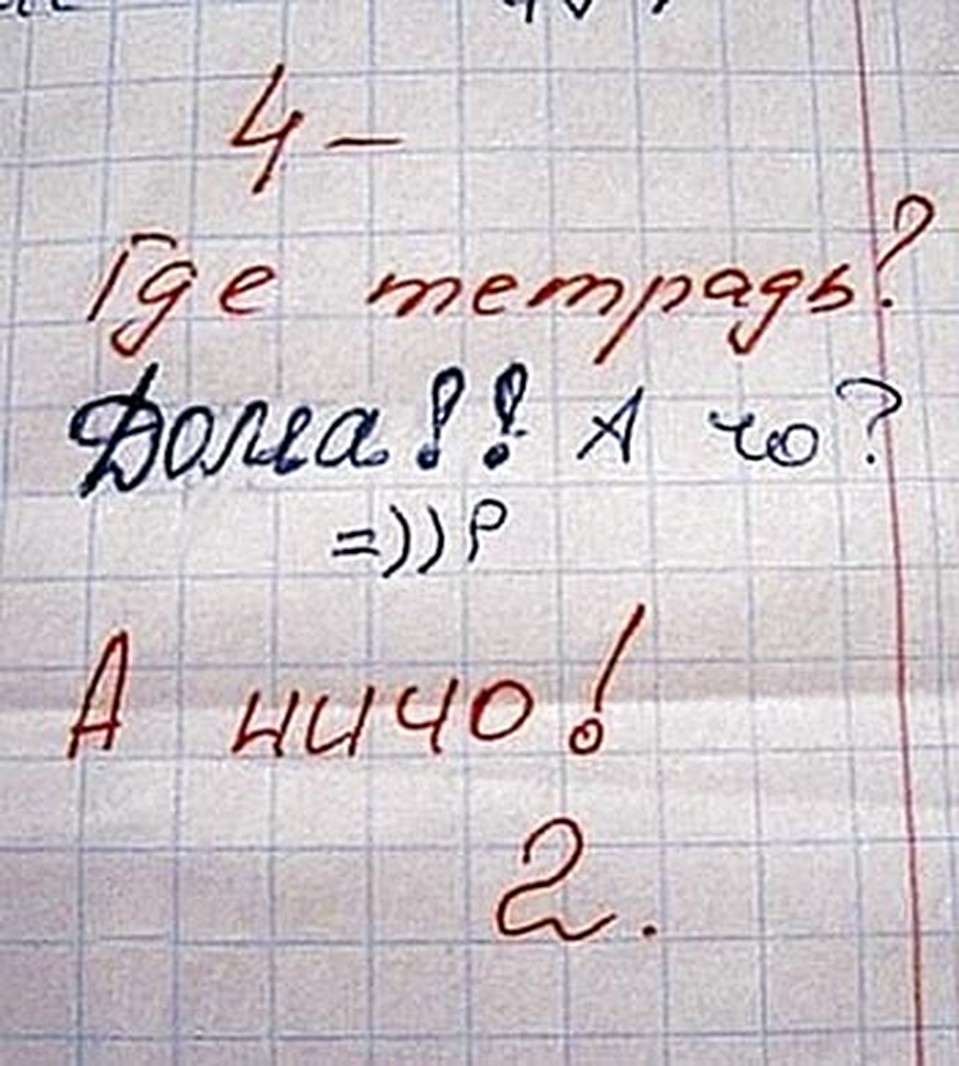 4 –
Где тетрадь?
Дома!! А чо?
=)) P
А ничо!
2.